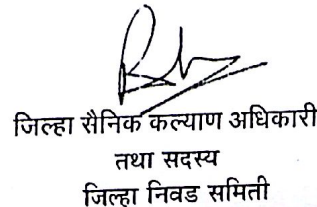 जिल्हा सैनिक कल्याण अधिकारी
तथा सदस्य
जिल्हा निवड समिती